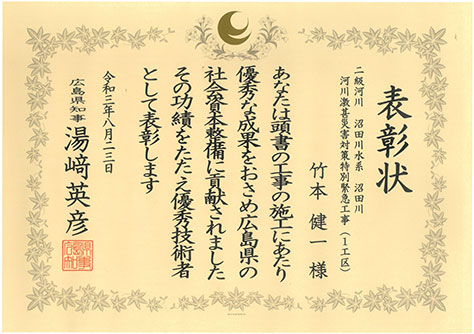 表彰状
二級河川 沼田川水系 沼田川
河川激甚災害対策特別緊急工事(1工区)
竹本健一様
あなたは頭書の工事の施工にあたり
優秀な成果をおさめ広島県の
社会資本整備に貢献されました
その功績をたたえ優秀技術者
として表彰します
令和三年八月二三日
広島県知事 湯﨑英彦